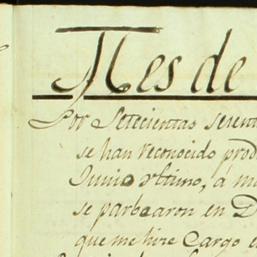 Mes de
Por Setecientas setent
se han reconocido prod
Junio vltimo, á m
se parbearon en D
que me hice Cargo e